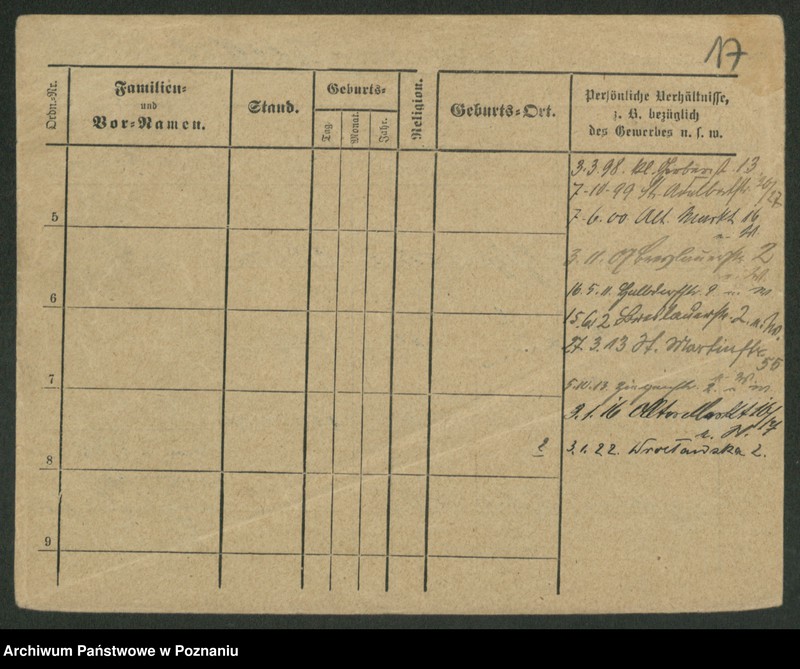 17
Ordn.-Nr.
Familien-
und
Vor-Namen.
Stand.
Geburts-
Tag.
Monat.
Jahr.
Religion.
Geburts-Ort.
Persönliche Verhältnisse,
z. B. bezüglich
des Gewerbes u. s. w.
3.3.98. kl. Gerberst. 13
7-10-99 St. Adalbertstr. 26/27
7-6.00 Alt. Markt 16
u. W.
5
3.11.07 Breslauerstr. 2
u. W.
16.5.11. 9 u. W
6
15.6.12 Breslauerstr. 2. u. W.
27.3.13 St. Martinstr.
55
7
5.10.13. 2. u. W
3.1.16 Alter Markt 16/17
u. W.
2 3.1.22. Wrocławska 2.
8
9
Archiwum Państwowe w Poznaniu